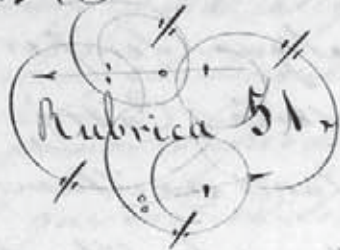 Rubrica 51.